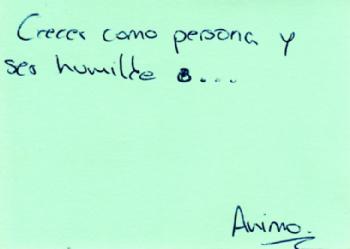 Crecer como persona y
ser humilde ...
Animo.